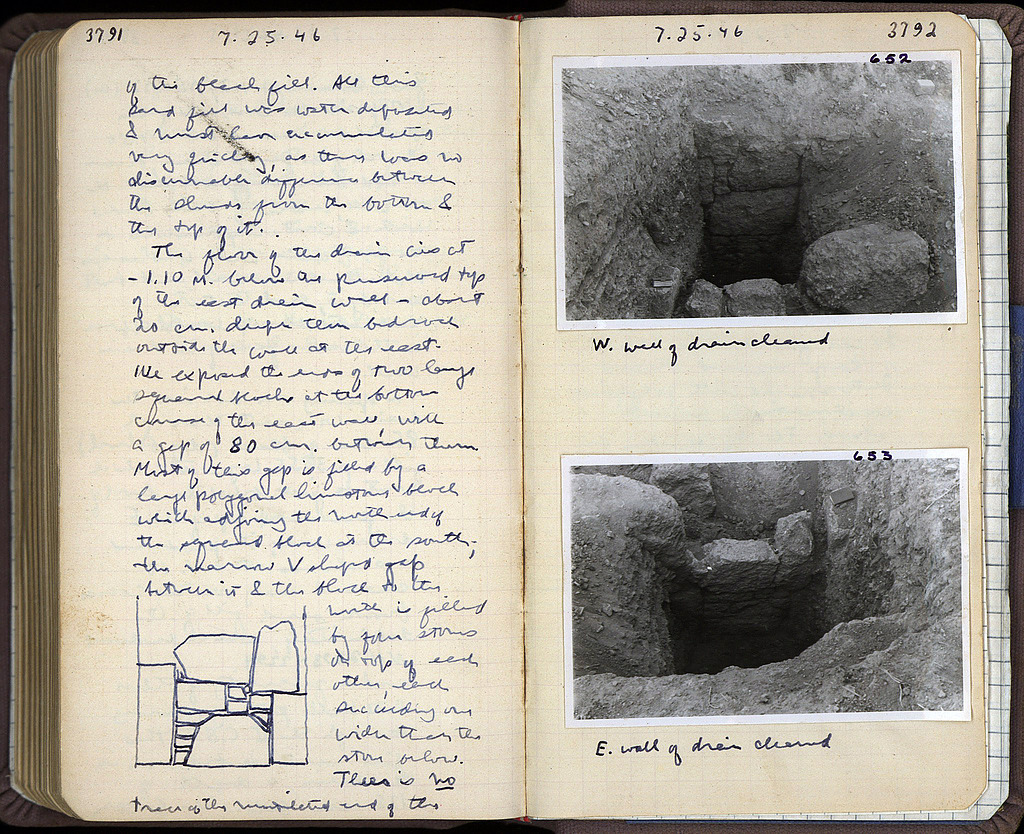 3791
7.25.46
of the black fill. All this
sand fill was water deposited
& must have accumulated
very quickly, as there was no
discernable difference between
the sherds from the bottom &
the top of it.
The floor of the drain lies at
- 1.10 M. below the preserved top
of the east drain wall - about
20 cm. deeper than bedrock
outside the wall at the east.
We exposed the ends of two large
squared blocks at the bottom
course of the east wall, with
a gap of 80 cm. between them
Most of this gap is filled by a
large polygonal limestone block
which adjoins the north end of
the squared block at the south;
the narrow V shaped gap
between it & the block to the
north is filled
by four stones
on top of each
other, each
succeeding one
wider than the
stone below.
There is no
trace of the end of the
7.25.46
3792
652
W. wall of drain cleaned
653
E. wall of drain cleaned